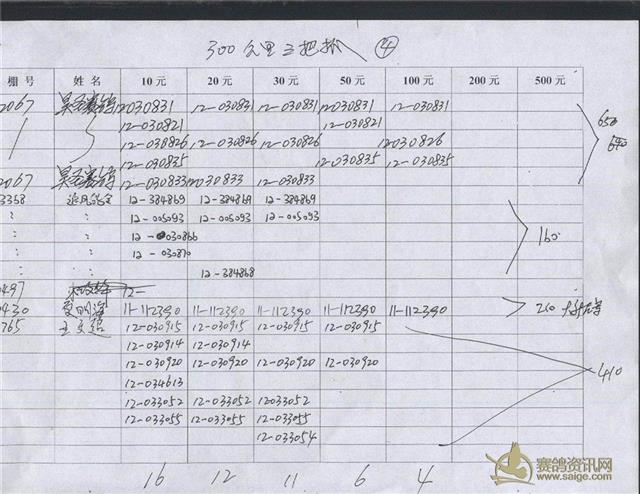 300公里三把抓 ④
棚号 姓名 10元 20元 30元 50元 100元 200元 500元
2067 12030831 12-030831 12-030831 12030831 12-030831
12-030821 12-030821
12-030826 12-030826 12-030826 12030826
12-030835 12-030835 12-030835
2067 12-030833 12030833 12-030833
3358 12-384869 12-384869 12-384869
12-005093 12-005093 12-005093
160
12-030866
12-030870
12-384868
0497 12-
0430 11-112390 11-112390 11-112390 11-112390 11-112390 210
765 12-030915 12-030915 12-030915 12-030915
12-030914 12-030914
12-030920 12-030920 12-030920 12-030920
410
12-034613
12-033052 12-033052 12033052
12-033055 12-033055 12-033055
12-033054
16 12 11 6 4
赛鸽资讯网
www.saige.com